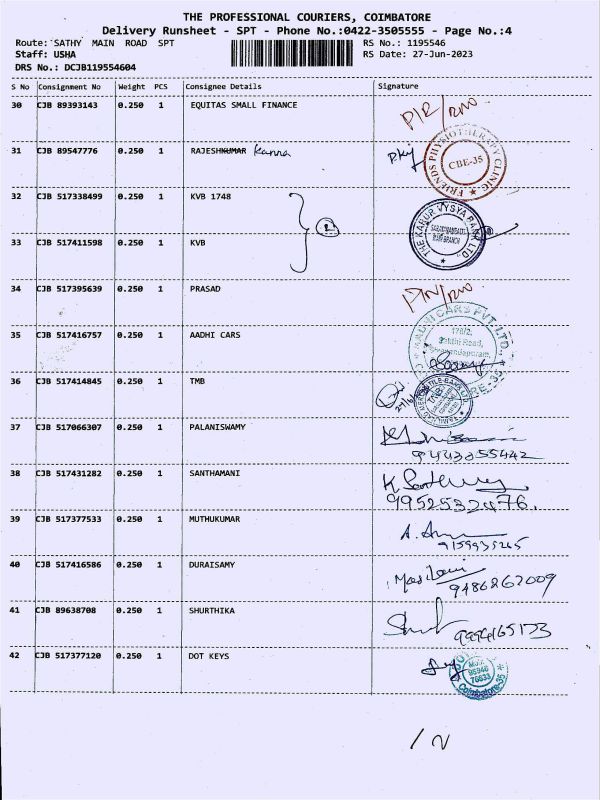 THE PROFESSIONAL COURIERS, COIMBATORE
Delivery Runsheet - SPT - Phone No.:0422-3505555 - Page No.:4
Route: SATHY MAIN ROAD SPT RS No.: 1195546
Staff: USHA RS Date: 27-Jun-2023
DRS No.: DCJB119554604
S No Consignment No Weight PCS Consignee Details Signature
30 CJB 89393143 0.250 1 EQUITAS SMALL FINANCE
31 CJB 89547776 0.250 1 RAJESHKUMAR Kanna
FRIENDS PHYSIOTHERAPY CLINIC
CBE-35
32 CJB 517338499 0.250 1 KVB 1748
2
THE KARUR VYSYA BANK LTD
BRANCH
33 CJB 517411598 0.250 1 KVB
34 CJB 517395639 0.250 1 PRASAD
35 CJB 517416757 0.250 1 AADHI CARS
AADHI CARS PVT. LTD.
Sakthi Road,
36 CJB 517414845 0.250 1 TMB
37 CJB 517066307 0.250 1 PALANISWAMY
38 CJB 517431282 0.250 1 SANTHAMANI
9952532476.
39 CJB 517377533 0.250 1 MUTHUKUMAR
40 CJB 517416586 0.250 1 DURAISAMY
9486862009
41 CJB 89638708 0.250 1 SHURTHIKA
42 CJB 517377120 0.250 1 DOT KEYS
Coimbatore-35